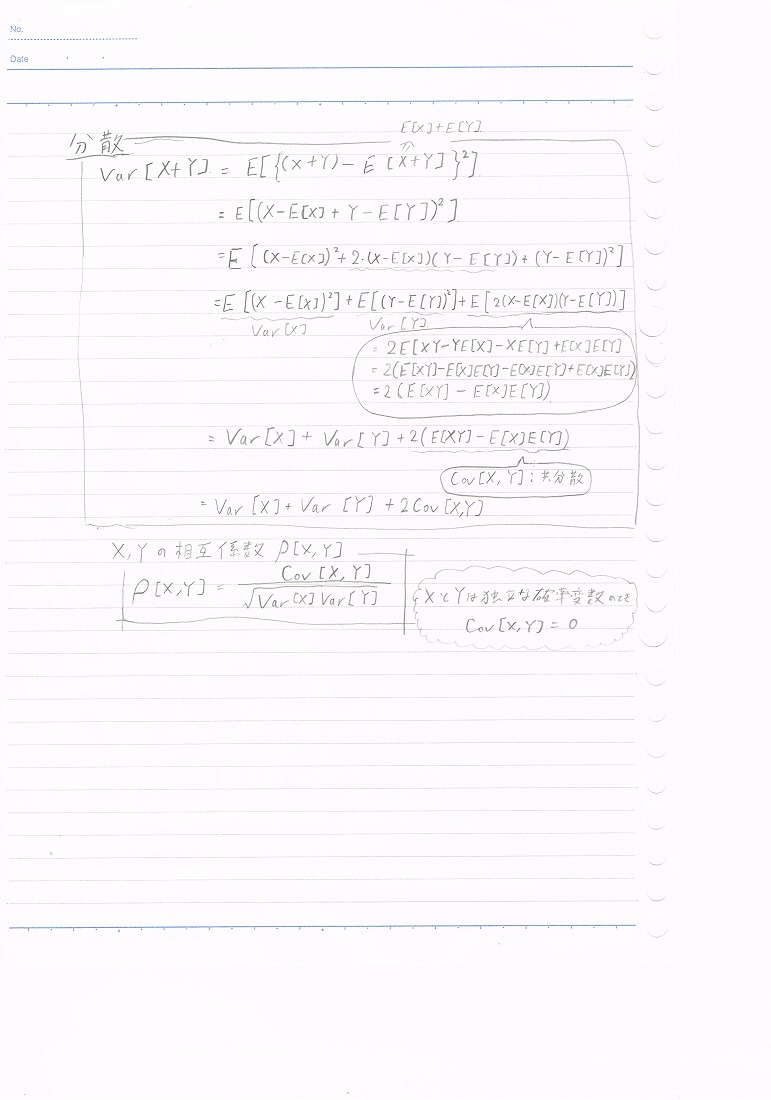 No.
Date
E[X]+E[Y]
分散
Var[X+Y] = E[{(X+Y)-E[X+Y]}²]
= E[(X-E[X]+Y-E[Y])²]
= E[(X-E[X])²+2·(X-E[X])(Y-E[Y])+(Y-E[Y])²]
= E[(X-E[X])²]+E[(Y-E[Y])²]+E[2(X-E[X])(Y-E[Y])]
Var[X] Var[Y]
= 2E[XY-YE[X]-XE[Y]+E[X]E[Y]]
= 2(E[XY]-E[X]E[Y]-E[X]E[Y]+E[X]E[Y])
= 2(E[XY]-E[X]E[Y])
= Var[X]+Var[Y]+2(E[XY]-E[X]E[Y])
Cov[X,Y]:共分散
= Var[X]+Var[Y]+2Cov[X,Y]
X,Yの相互係数 ρ[X,Y]
ρ[X,Y] = Cov[X,Y] / √Var[X]Var[Y]
XとYは独立な確率変数のとき
Cov[X,Y] = 0